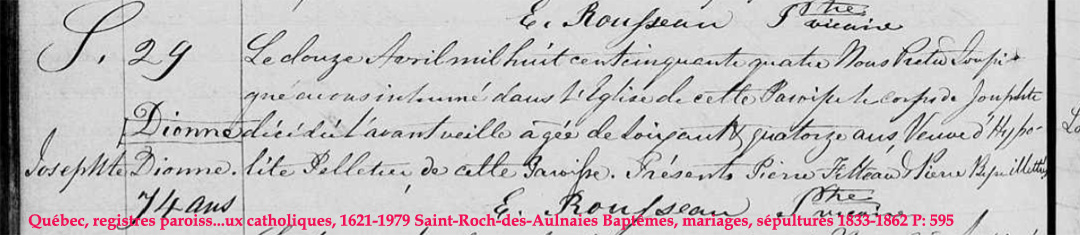 E. Rousseau Ptre vicaire
S. 29
Le douze Avril mil huit cent cinquante quatre Nous Prêtre Soussi-
gné avons inhumé dans l'Eglise de cette Paroisse le corps de Josephte
Dionne décédée l'avant veille agée de soixante & quatorze ans, Veuve d'Hyppo-
Josephte Dionne. lite Pelletier de cette Paroisse. Présents Pierre Pierre
74 ans E. Rousseau Ptre vicaire
Québec, registres paroiss...ux catholiques, 1621-1979 Saint-Roch-des-Aulnaies Baptêmes, mariages, sépultures 1833-1862 P: 595